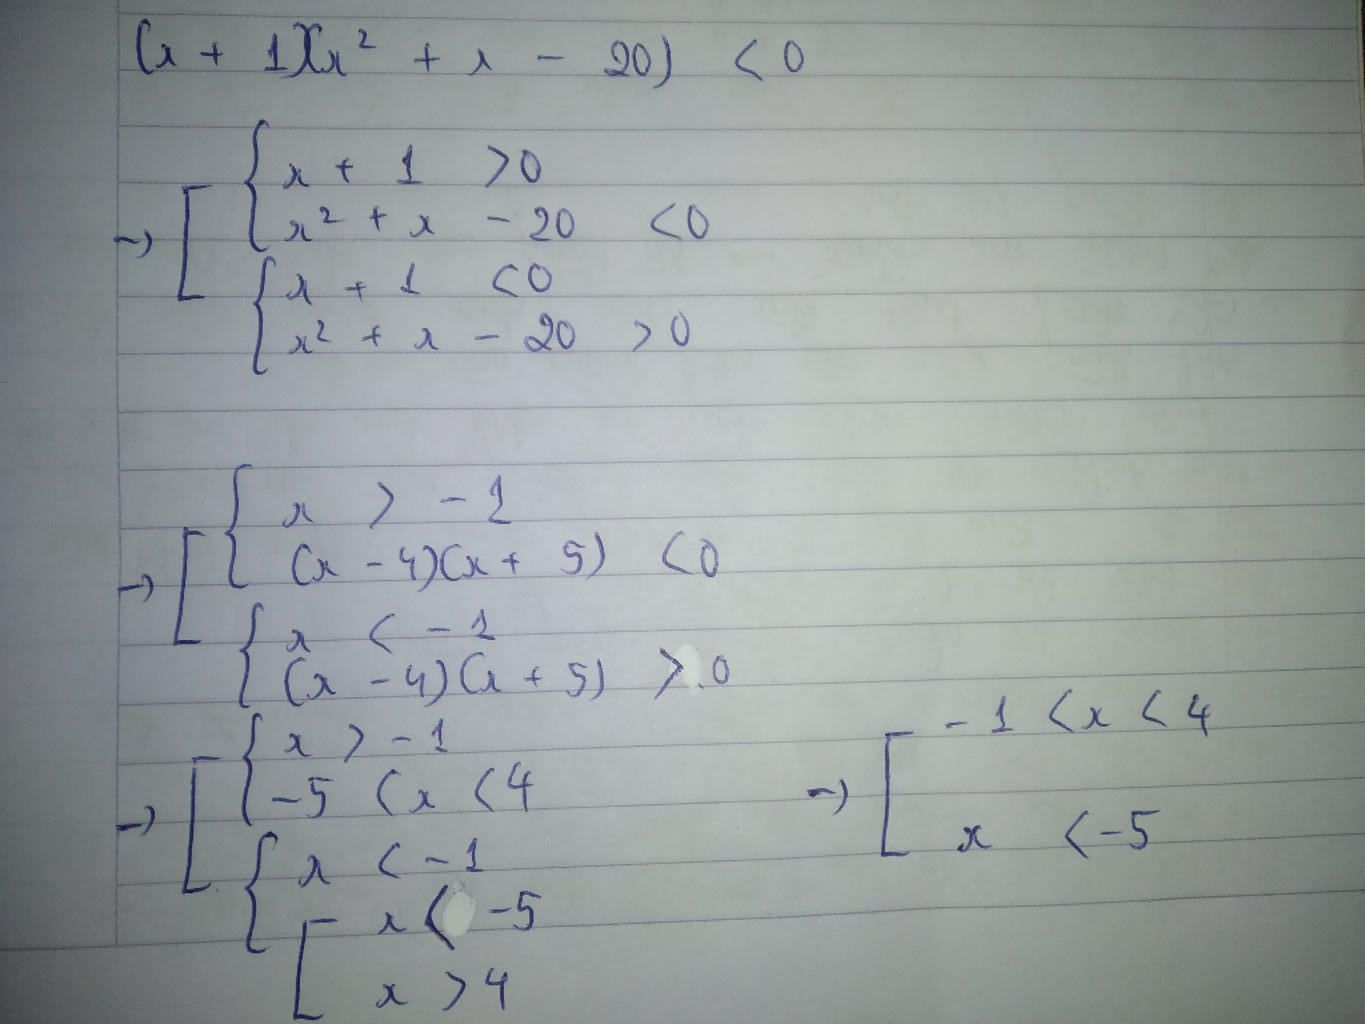 (x + 1)(x² + x - 20) < 0
→ [ { x + 1 > 0
x² + x - 20 < 0
{ x + 1 < 0
x² + x - 20 > 0
→ [ { x > -1
(x - 4)(x + 5) < 0
{ x < -1
(x - 4)(x + 5) > 0
→ [ { x > -1
-5 < x < 4
{ x < -1
[ x < -5
x > 4
→ [ -1 < x < 4
x < -5